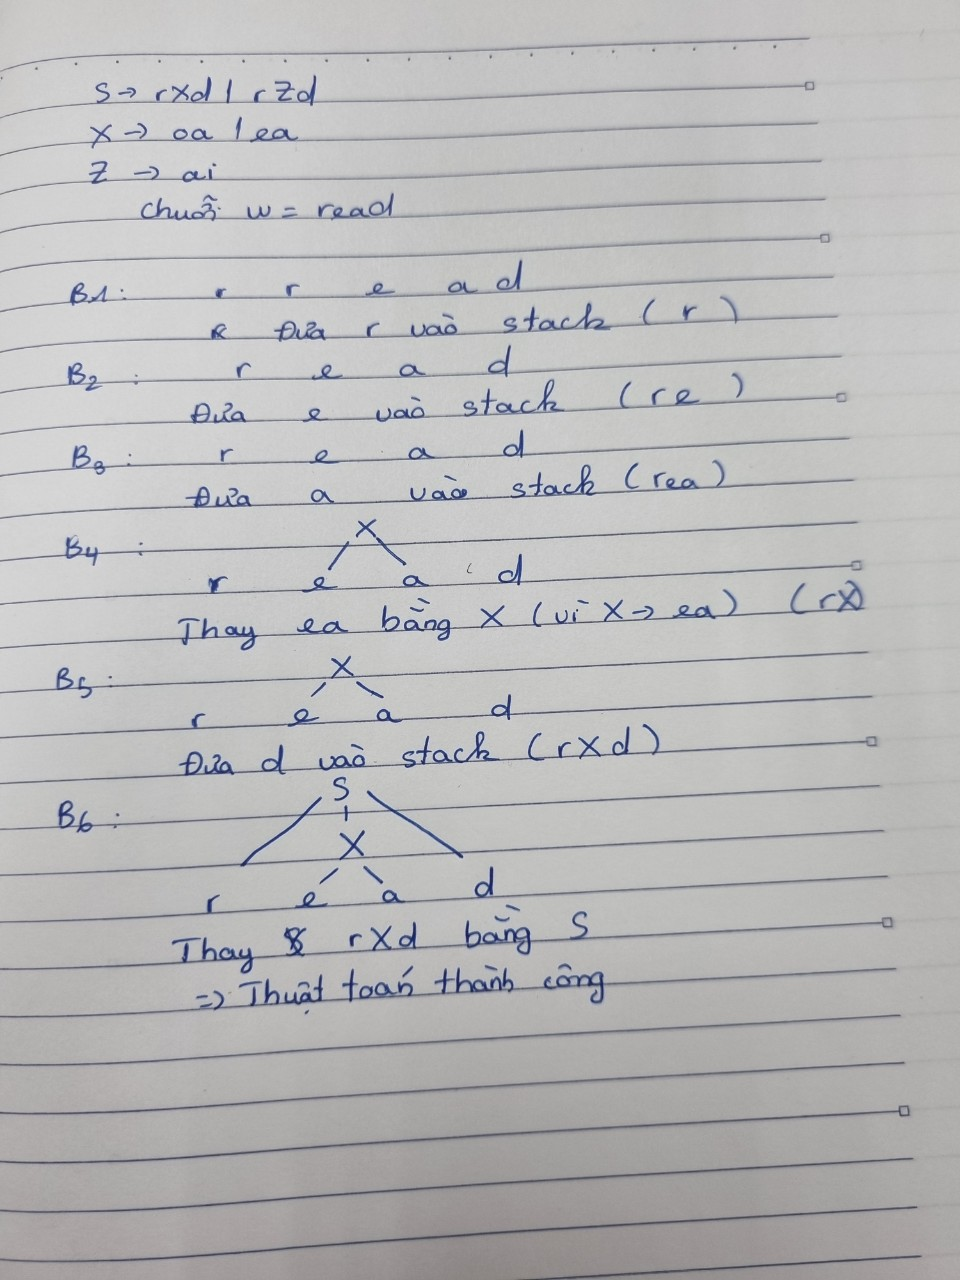 S → rXd | rZd
X → oa | ea
Z → ai
Chuỗi w = read
B1: r r e a d
Đưa r vào stack (r)
B2: r e a d
Đưa e vào stack (re)
B3: r e a d
Đưa a vào stack (rea)
X
B4:
r e a d
Thay ea bằng X (vì X → ea) (rX)
X
B5:
r e a d
Đưa d vào stack (rXd)
S
B6:
X
r e a d
Thay rXd bằng S
=> Thuật toán thành công